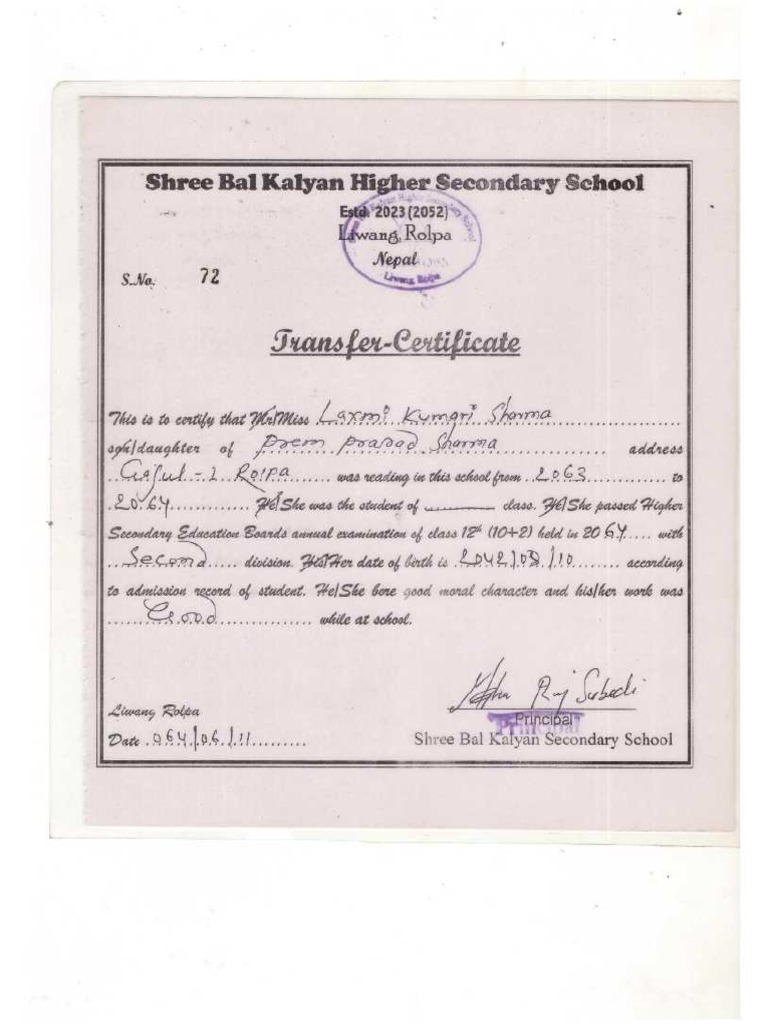 Shree Bal Kalyan Higher Secondary School
Estd. 2023 (2052)
Liwang, Rolpa
Nepal
Liwang Rolpa
S.No. 72
Transfer-Certificate
This is to certify that Mr/Miss Laxmi Kumari Sharma
son/daughter of Prem Prasad Sharma address
Gajul - 2 Rolpa was reading in this school from 2063 to
2064 He/She was the student of class. He/She passed Higher
Secondary Education Boards annual examination of class 12th (10+2) held in 2064 with
Second division. His/Her date of birth is 2042/03/10 according
to admission record of student. He/She bere good moral character and his/her work was
Good while at school.
Raj Subedi
Liwang Rolpa
Principal
Date 064/06/11
Shree Bal Kalyan Secondary School